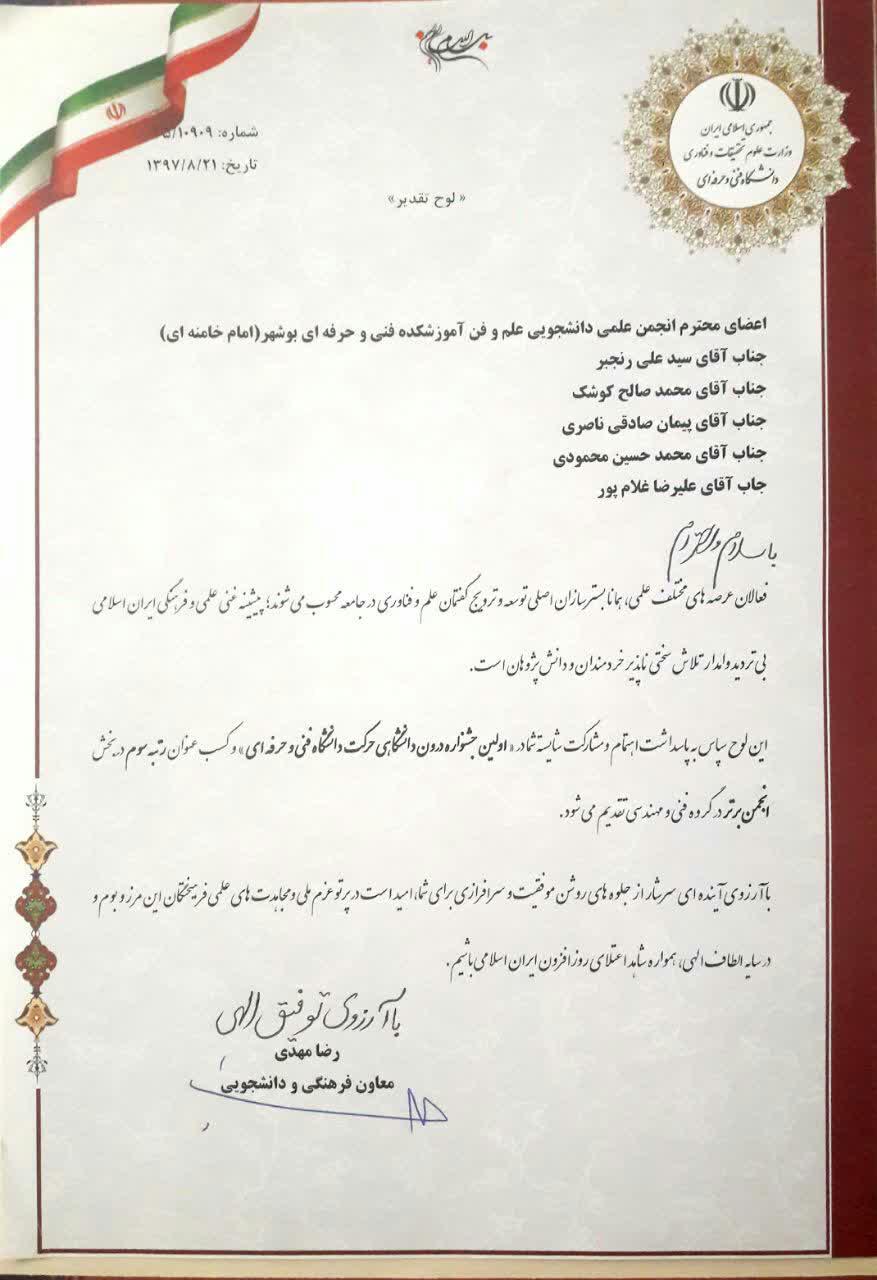 جمهوری اسلامی ایران
وزارت علوم تحقیقات و فناوری
دانشگاه فنی و حرفه ای
شماره: ۵/۱۰۹۰۹
تاریخ: ۱۳۹۷/۸/۲۱
« لوح تقدیر»
اعضای محترم انجمن علمی دانشجویی علم و فن آموزشکده فنی و حرفه ای بوشهر(امام خامنه ای)
جناب آقای سید علی رنجبر
جناب آقای محمد صالح کوشک
جناب آقای پیمان صادقی ناصری
جناب آقای محمد حسین محمودی
جاب آقای علیرضا غلام پور
با سلام و احترام
فعالان عرصه های مختلف علمی، همانا بسترسازان اصلی توسعه و ترویج گفتمان علم و فناوری در جامعه محسوب می شوند؛ پیشینه غنی علمی و فرهنگی ایران اسلامی
بی تردید وامدار تلاش سختی ناپذیر خردمندان و دانش پژوهان است.
این لوح سپاس به پاسداشت اهتمام و مشارکت شایسته شما در « اولین جشنواره درون دانشگاهی حرکت دانشگاه فنی و حرفه ای» و کسب عنوان رتبه سوم در بخش
انجمن برتر در گروه فنی و مهندسی تقدیم می شود.
با آرزوی آینده ای سرشار از جلوه های روشن موفقیت و سرافرازی برای شما، امید است در پرتو عزم ملی و مجاهدت های علمی فرهیختگان این مرز و بوم و
در سایه الطاف الهی، همواره شاهد اعتلای روز افزون ایران اسلامی باشیم.
با آرزوی توفیق الهی
رضا مهدی
معاون فرهنگی و دانشجویی